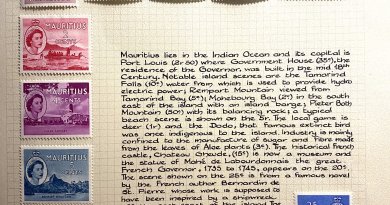 MAURITIUS
MAURITIUS
MAURITIUS
Mauritius lies in the Indian Ocean and its capital is
Port Louis (2r.50) where Government House (35c), the
residence of the Governor, was built in the mid 18th
Century. Notable island scenes are the Tamarind
Falls (10c) water from which is used to provide hydro
electric power; Rempart Mountain viewed from
Tamarind Bay (5c); Mahebourg Bay (2c) in the south
east of the island with an island barge; Pieter Both
Mountain (50c) with its balancing rock; a typical
beach scene is shown on the 5r. The local game is
deer (1r) and the Dodo, that famous extinct bird
was once indigenous to the island. Industry is mainly
confined to the manufacture of sugar and fibre made
from the leaves of Aloe plants (3c). The historical French
castle, Chateau (15c) is now a museum and
the statue of Mahé de Labourdonnais the great
French Governor, 1735 to 1745, appears on the 20c.
The scene shown on the 25c is from a famous novel
by the French author Bernardin de
St. Pierre whose work is supposed to
have been inspired by a shipwreck